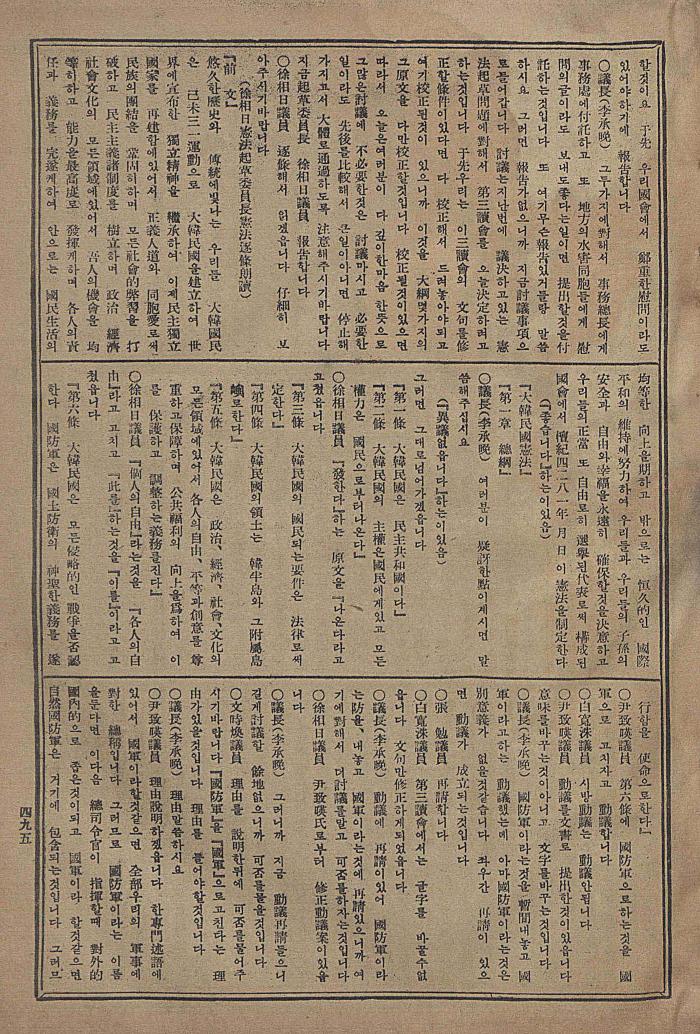 할것이요 于先 우리國會에서 鄭重한慰問이라도
있어야하기에 報告합니다
○議長(李承晩) 그두가지에對해서 事務總長에게
事務處에付託하고 또 地方의水害同胞들에게 慰
問의글이라도 보내도좋다는일이면 提出할것을付
託하는것입니다 또 여기무슨報告있거들랑 말씀
하시요 그러면 報告가없으니까 지금討議事項으
로들어갑니다 討議는지난번에 議決하고있는 憲
法起草問題에對해서 第三讀會를 오늘決定하려고
하는것입니다 于先우리는 이三讀會의 文句를修
正할條件이있다면 다 校正해서 드려놓아야되고
여기校正된것이 있으니까 이것을 大綱몇가지의
그原文을 다만校正한것입니다 校正될것이있으면
따라서 오늘은여러분이 다 깊이한마음 한뜻으로
그많은討議에 不必要한것은 討議마시고 必要한
일이라도 先後를比較해서 큰일이아니면 停止해
가지고서 大體로通過하도록 注意해주시기바랍니다
지금起草委員長 徐相日議員 報告합니다
○徐相日議員 逐條해서 읽겠읍니다 仔細히 보
아주시기바랍니다
(徐相日憲法起草委員長憲法逐條朗讀)
『前 文』
悠久한歷史와 傳統에빛나는 우리들 大韓國民
은 己未三一運動으로 大韓民國을建立하여 世
界에宣布한 獨立精神을 繼承하여 이제民主獨立
國家를 再建함에있어서 正義人道와 同胞愛로써
民族의團結을 鞏固히하며 모든社會的弊習을 打
破하고 民主主義諸制度를 樹立하며 政治 經濟
社會文化의 모든領域에있어서 各人의機會를 均
等히하고 能力을最高度로 發揮케하며 各人의責
任과 義務를 完遂케하여 안으로는 國民生活의
均等한 向上을期하고 밖으로는 恒久的인 國際
平和의 維持에努力하여 우리들과 우리들의子孫의
安全과 自由와幸福을永遠히 確保할것을決意하고
우리들의正當 또 自由로히 選擧된代表로써 構成된
國會에서 檀紀四二八一年 月 日이憲法을制定한다
(『좋습니다』하는이있음)
『大韓民國憲法』
『第一章 總綱』
○議長(李承晩) 여러분이 疑訝한點이계시면 말
씀해주십시요
(『異議없읍니다』하는이있음)
그러면 그대로넘어가겠읍니다
『第一條 大韓民國은 民主共和國이다』
『第二條 大韓民國의 主權은國民에게있고 모든
權力은 國民으로부터나온다』
○徐相日議員 『發한다』하는 原文을『나온다』라고
고쳤읍니다
『第三條 大韓民國의 國民되는要件은 法律로써
定한다』
『第四條 大韓民國의領土는 韓半島와 그附屬島
嶼로한다』
『第五條 大韓民國은 政治、經濟、社會、文化의
모든領域에있어서 各人의自由、平等과創意를 尊
重하고保障하며 公共福利의 向上을爲하여 이
를 保護하고 調整하는義務를진다』
○徐相日議員 『個人의自由』라는것을 『各人의自
由』라고 고치고『此를』하는것을『이를』이라고 고
쳤읍니다
『第六條 大韓民國은 모든侵略的인 戰爭을否認
한다 國防軍은 國土防衛의 神聖한義務를 遂
行함을 使命으로한다』
○尹致暎議員 第六條에 國防軍으로하는것을 國
軍으로 고치자고 動議합니다
○白寬洙議員 시방動議는 動議안됩니다
○尹致暎議員 動議를文書로 提出한것이있읍니다
意味를바꾸는것이아니고 文字를바꾸는것입니다
○議長(李承晩) 國防軍이라는것을 暫間내놓고 國
軍이라고하는 動議했는데 아마國防軍이라는것은
別意義가 없을것같습니다 좌우간 再請이 있으
면 動議가 成立되는것입니다
○張勉議員 再請합니다
○白寬洙議員 第三讀會에서는 글字를 바꿀수없
읍니다 文句만修正하게되었읍니다
○議長(李承晩) 動議에 再請이있어 國防軍이라
는防을、내놓고 國軍이라는것에 再請있으니까 여
기에對해서 더討議를말고 可否를하자는것입니다
○徐相日議員 尹致暎氏로부터 修正動議案이있읍
니다
○議長(李承晩) 그러니까 지금 動議再請들으니
길게討議할 餘地없으니까 可否를물을것입니다
○文時煥議員 理由를 說明한뒤에 可否를물어주
시기바랍니다『國防軍』을『國軍』으로고친다는 理
由가있을것입니다 理由를 들어야할것입니다
○議長(李承晩) 理由말씀하시요
○尹致暎議員 理由說明하겠읍니다 한專門述語에
있어서 國軍이라할것같으면 全部우리의 軍事에
對한 總稱입니다 그러므로 國防軍이라는 이름
을둔다면 이다음 總司令官이 指揮할때 對外的
國內的으로 좁은것이되고 國軍이라 할것같으면
自然國防軍은 거기에 包含되는것입니다 그러므
四九五